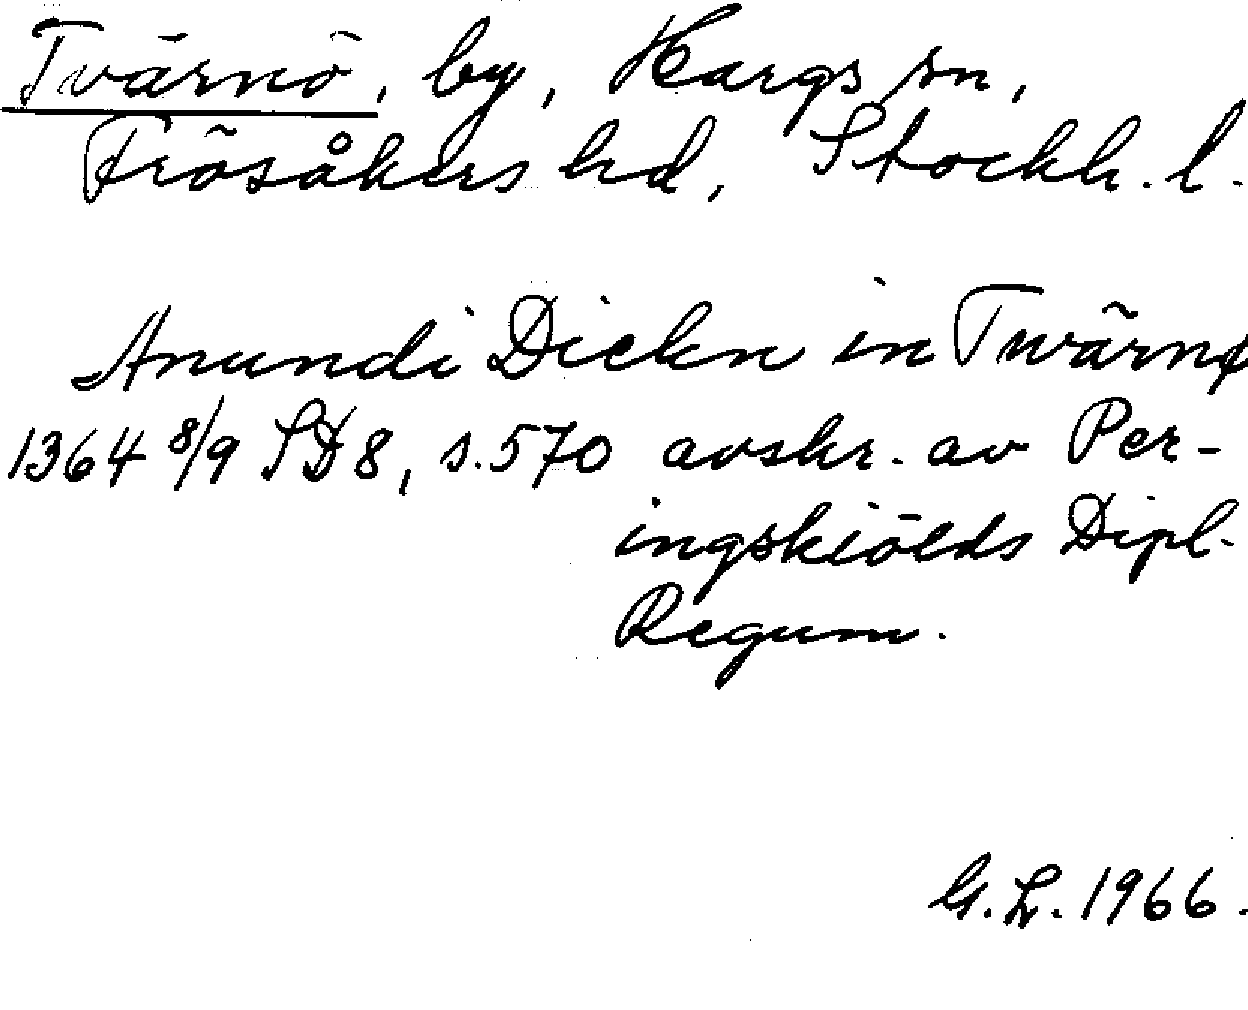 Tvärnö, by, Hargs sn,
Frösåkers hd, Stockh. l.
Anundi Diekn in Twärnø
1364 8/9 SD 8, s. 570 avskr. av Per-
ingskiölds Dipl.
Regum.
G. L. 1966.